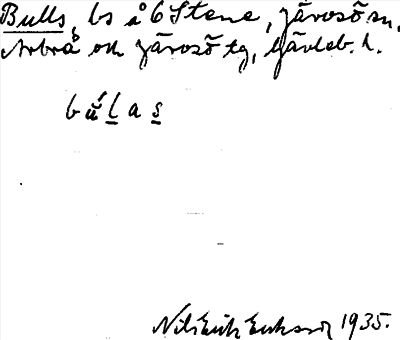 Bulls, bs å 6 Stene, Järvsö sn,
Arbrå och Järvsö tg, Gävleb. l.
bu̇́l̲as̲
Nils Erik Eriksson 1935.